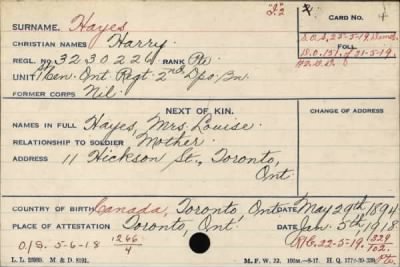 "L2"
SURNAME. Hayes CARD NO.
CHRISTIAN NAMES Harry.
REGL. NO. 3230226 RANK Pte.
S.O.S. 25-5-19
FOLL.
UNIT 1st Cen. Ont Regt 2nd Dpo. Bn.
D.O. 151, of 31-5-19.
FORMER CORPS Nil.
NEXT OF KIN. CHANGE OF ADDRESS
NAMES IN FULL Hayes, Mrs. Louise.
RELATIONSHIP TO SOLDIER Mother.
ADDRESS 11 Hickson St., Toronto,
Ont
COUNTRY OF BIRTH Canada, Toronto, Ont DATE May 29th 1894
PLACE OF ATTESTATION Toronto, Ont. DATE Jan. 5th, 1918
O/S. 5-6-18 1266/4 R/C. 22-5-19. 1329/102.
L. L. 25989. M. & D. 8191. M. F. W. 22. H. Q. 1772-39-339